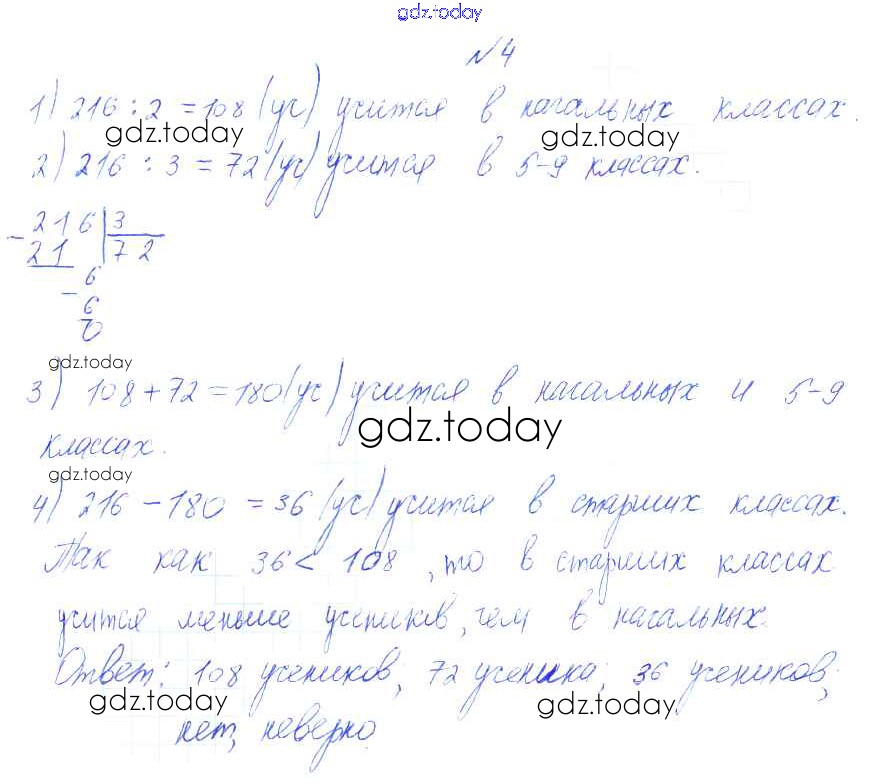 gdz.today
№4
1) 216 : 2 = 108 (уч) учится в начальных классах.
gdz.today gdz.today
2) 216 : 3 = 72 (уч) учится в 5-9 классах.
- 216 | 3
21 | 72
- 6
6
0
gdz.today
3) 108 + 72 = 180 (уч) учится в начальных и 5-9
gdz.today
классах.
gdz.today
4) 216 - 180 = 36 (уч) учится в старших классах.
Так как 36 < 108, то в старших классах
учится меньше учеников, чем в начальных.
Ответ: 108 учеников, 72 ученика; 36 учеников;
gdz.today gdz.today
нет, неверно